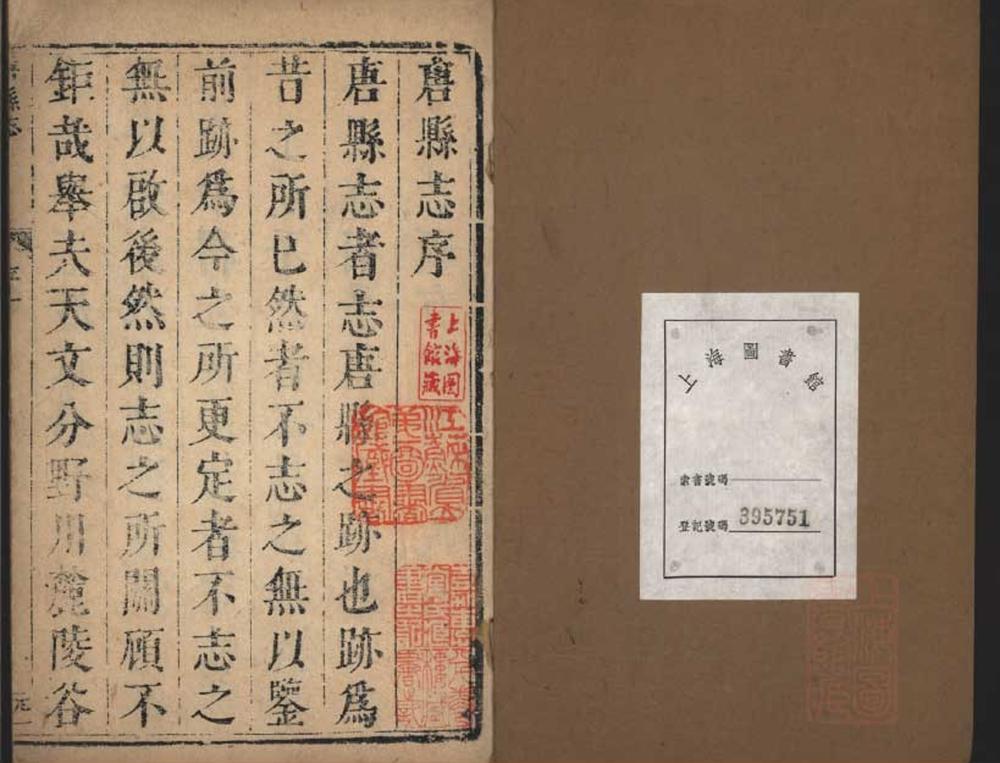 唐縣志序
唐縣志者志唐縣之跡也跡爲
昔之所已然者不志之無以鑒
前跡爲今之所更定者不志之
無以啟後然則志之所關頋不
鉅哉舉夫天文分野川麓陵谷
上海图
書館藏
上海圖書館
索書號碼
登記號碼 395751